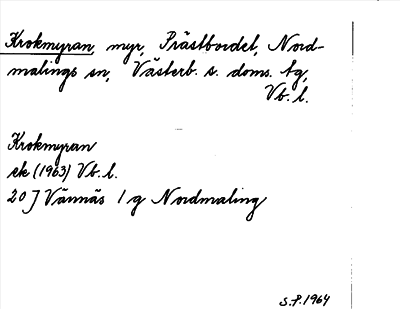 Krokmyran, myr, Prästbordet, Nord-
malings sn, Västerb. s. doms. tg,
Vb. l.
Krokmyran
ek (1963) Vb. l.
20 J Vännäs 1 g Nordmaling
S.P. 1964